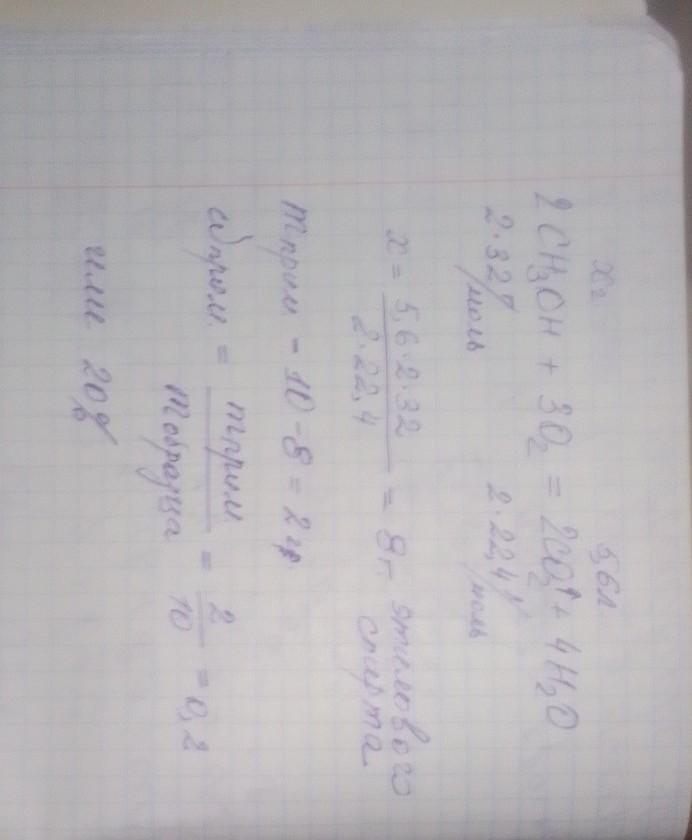 xг 5,6л
2CH₃OH + 3O₂ = 2CO₂↑ + 4H₂O
2·32г/моль 2·22,4л/моль
x = 5,6·2·32 / 2·22,4 = 8г этилового спирта
mприм - 10-8=2г
ωприм. = mприм / mобразца = 2/10 = 0,2
или 20%